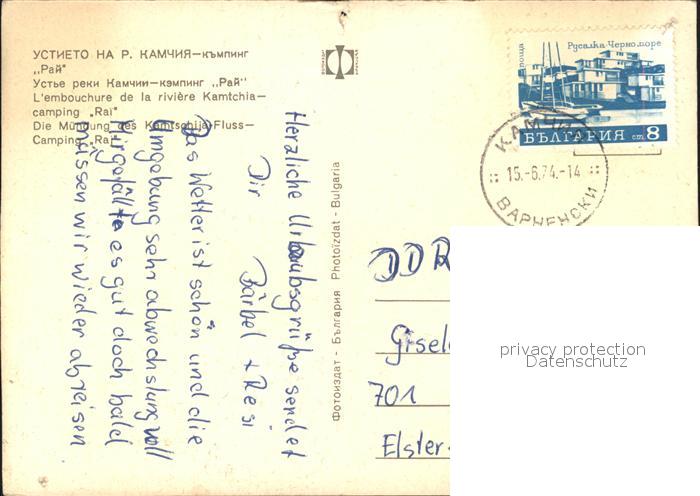 УСТИЕТО НА Р. КАМЧИЯ—къмпинг
„Рай"
Устье реки Камчии—кэмпинг „Рай"
L'embouchure de la rivière Kamtchia—
camping „Rai"
Die Mündung des Kamtschija-Fluss—
Camping „Rai"
Das Wetter ist schön und die
Umgebung sehr abwechslungvoll
Mir gefällt es gut doch bald
müssen wir wieder abreisen
Herzliche Urlaubsgrüße sendet
Dir Bärbel + Resi
Фотоиздат - България Photoizdat - Bulgaria
поща
Русалка Черно море
БЪЛГАРИЯ ст 8
КАМЧИЯ
15.-6.74.-14
ВАРНЕНСКИ
DDR
Gisel
701
Elster
privacy protection
Datenschutz